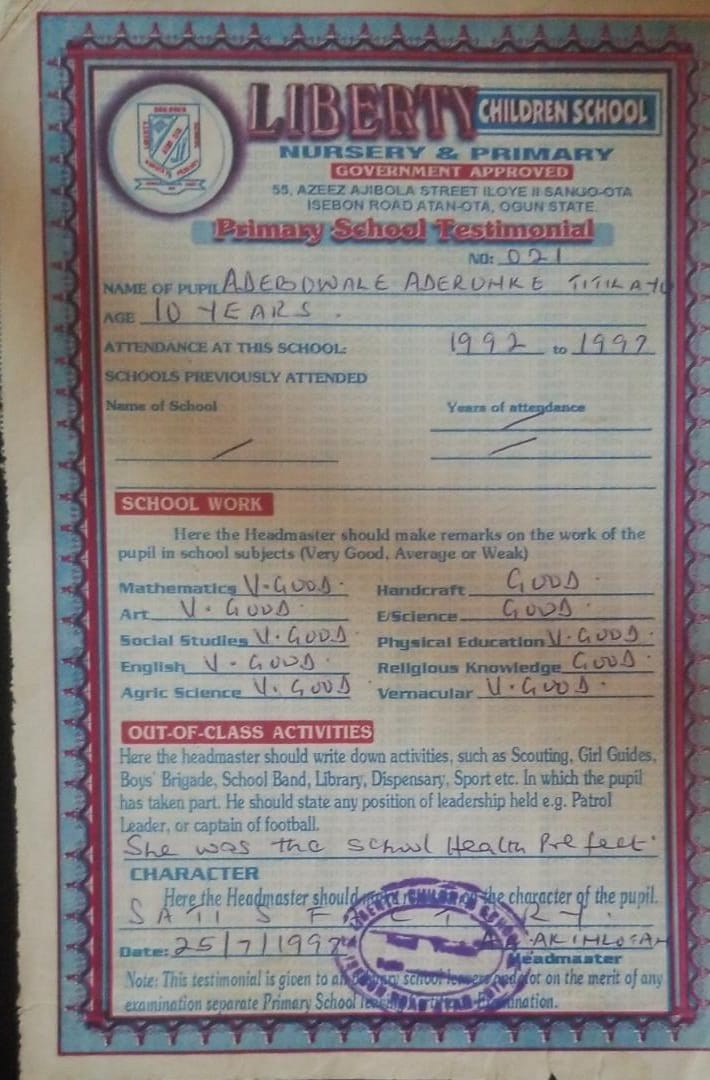 LIBERTY CHILDREN SCHOOL
NURSERY & PRIMARY
GOVERNMENT APPROVED
55, AZEEZ AJIBOLA STREET ILOYE II SANGO-OTA
ISEBON ROAD ATAN-OTA, OGUN STATE.
Primary School Testimonial
NO: 021
NAME OF PUPIL ADEBOWALE ADERONKE TITILAYO
AGE 10 YEARS.
ATTENDANCE AT THIS SCHOOL: 1992 to 1997
SCHOOLS PREVIOUSLY ATTENDED
Name of School Years of attendance
SCHOOL WORK
Here the Headmaster should make remarks on the work of the
pupil in school subjects (Very Good, Average or Weak)
Mathematics V.GOOD. Handcraft GOOD.
Art V.GOOD. E/Science GOOD.
Social Studies V.GOOD. Physical Education V.GOOD.
English V.GOOD. Religious Knowledge GOOD.
Agric Science V.GOOD Vernacular V.GOOD.
OUT-OF-CLASS ACTIVITIES
Here the headmaster should write down activities, such as Scouting, Girl Guides,
Boys' Brigade, School Band, Library, Dispensary, Sport etc. In which the pupil
has taken part. He should state any position of leadership held e.g. Patrol
Leader, or captain of football.
She was the school Health Prefect.
CHARACTER
Here the Headmaster should make remarks on the character of the pupil.
SATISFACTORY.
Date: 25/7/1997
Headmaster
Note: This testimonial is given to all primary school leavers and not on the merit of any
examination separate Primary School Leaving Examination.